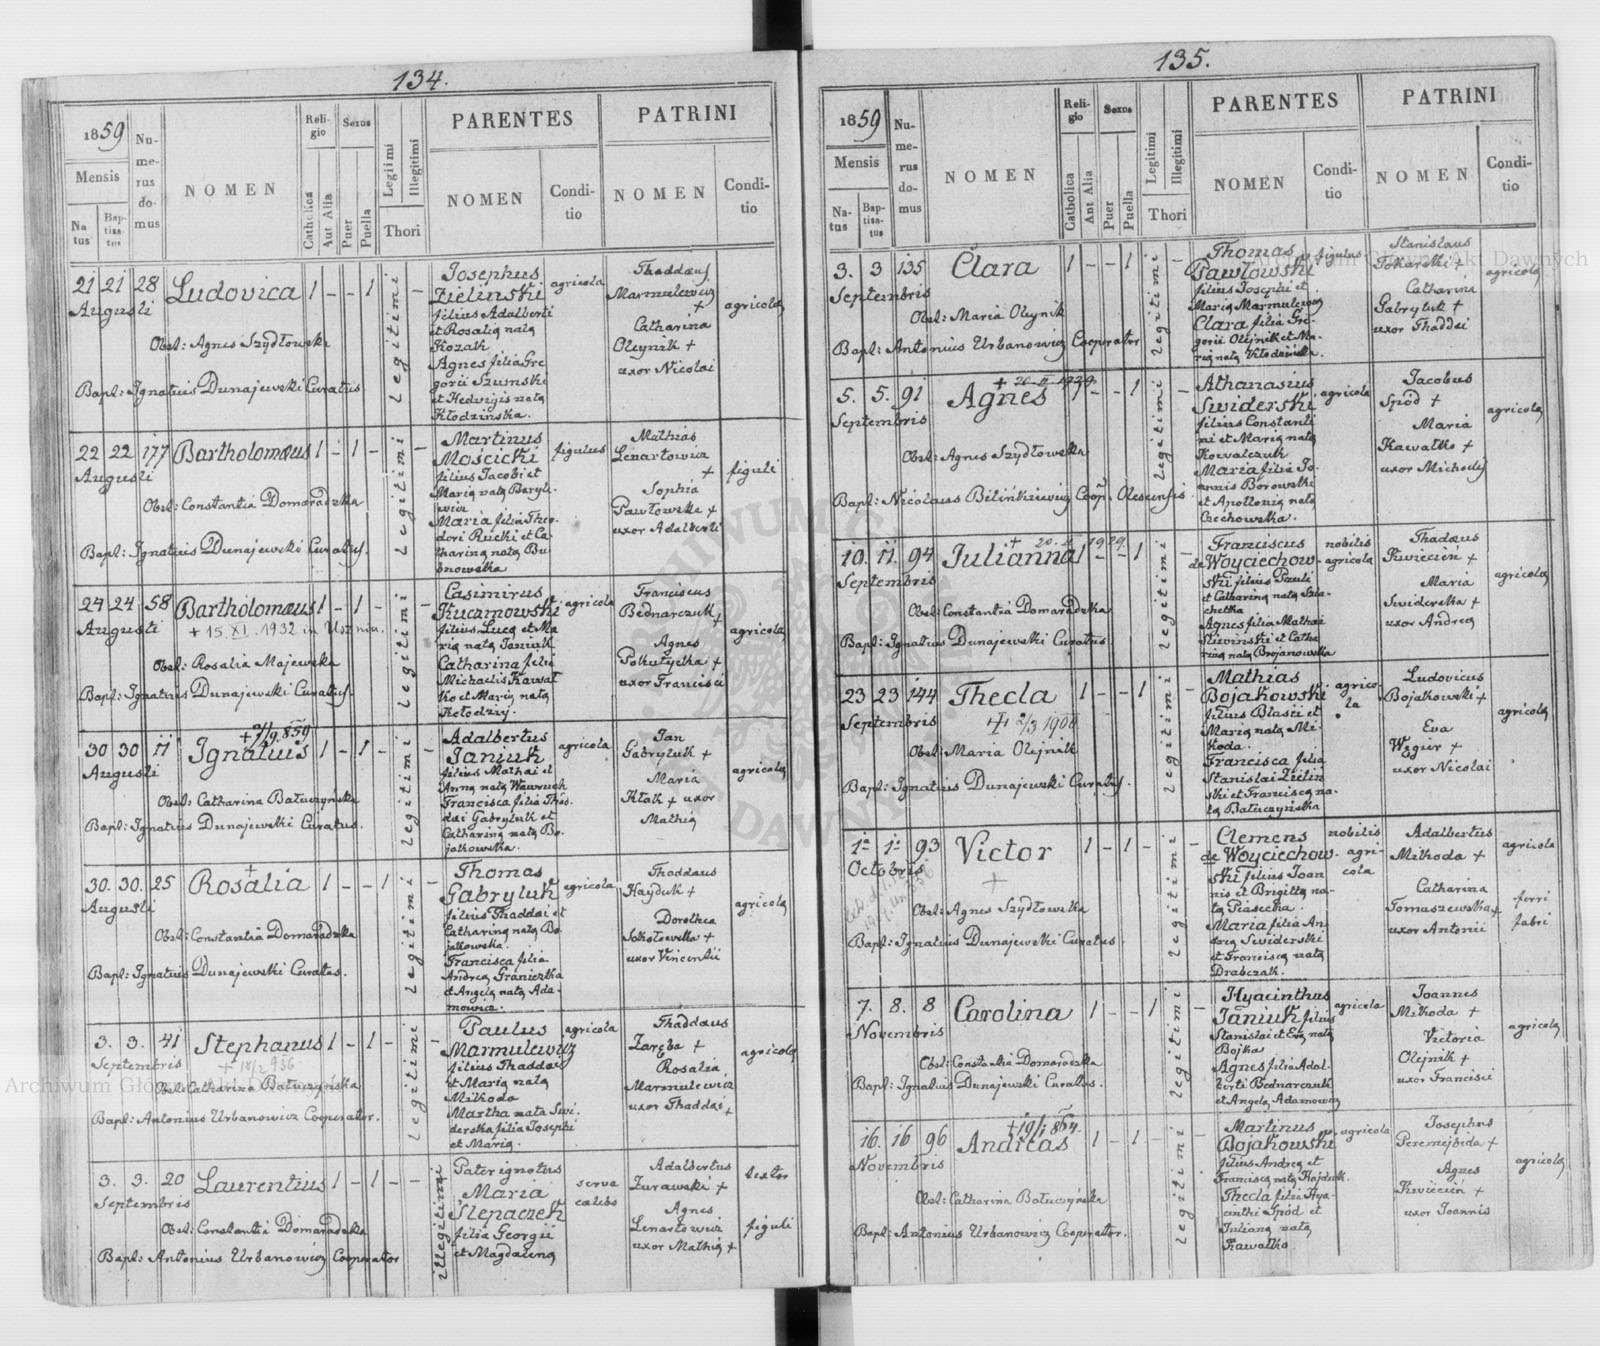 134.
1859
Mensis
Na
tus
Bap-
tisa-
tus
Nu-
me-
rus
do-
mus
NOMEN
Reli-
gio
Catholica
Aut Alia
Sexus
Puer
Puella
Legitimi
Illegitimi
Thori
PARENTES
NOMEN
Condi-
tio
PATRINI
NOMEN
Condi-
tio
21 21 28 Ludovica 1 - - 1 legitimi -
Augusti
Obst: Agnes Szydłowska
Bapt: Ignatius Dunajewski Curatus
Josephus
Zieliński
filius Adalberti
et Rosalia nata
Kozak
Agnes filia Gre
gorii Szumski
et Hedvigis nata
Kłodzińska.
agricola
Thaddaus
Marmulewicz
+
Catharina
Oleynik +
uxor Nicolai
agricola
22 22 177 Bartholomæus 1 - 1 - legitimi -
Augusti
Obst: Constantia Domaradzka
Bapt: Ignatius Dunajewski Curatus.
Martinus
Mościcki
filius Jacobi et
Maria nata Baryle-
wicz
Maria filia Theo-
dori Rucki et Ca
tharina nata Bu
bnowska
figulus
Mathias
Lenartowicz
+
Sophia
Pawłowska +
uxor Adalberti
figuli
24 24 58 Bartholomæus 1 - 1 - legitimi -
Augusti + 15. XI. 1932 in Ustnia.
Obst: Rosalia Majewska
Bapt: Ignatius Dunajewski Curatus
Casimirus
Kuczmowski
filius Luca et Ma
ria nata Janiuk
Catharina filia
Michaelis Kawał
ko et Maria nata
Kołodziy.
agricola
Franciscus
Bednarczuk
+
Agnes
Polkutycka +
uxor Francisci
agricola
+ 7/9.859
30 30 11 Ignatius 1 - 1 - legitimi -
Augusti
Obst: Catharina Batuczyńska
Bapt: Ignatius Dunajewski Curatus.
Adalbertus
Janiuk
filius Mathæi et
Anna nata Wawruch
Francisca filia Thad.
dai Gabryluk et
Catharina nata Bo-
jakowska.
agricola
Jan
Gabryluk +
Maria
Kłak + uxor
Mathia
agricola
+
30. 30. 25 Rosalia 1 - - 1 legitimi -
Augusti
Obst: Constantia Domaradzka
Bapt: Ignatius Dunajewski Curatus.
Thomas
Gabryluk
filius Thaddai et
Catharina nata Bo
jakowska.
Francisca filia
Andrea Graniczka
et Angela nata Ada-
mowicz.
agricola
Thaddaus
Hayduk +
Dorothea
Sokołowska +
uxor Vincentii
agricola
3. 3. 41 Stephanus 1 - 1 - legitimi -
Septembris + 18/2 936
Obst: Catharina Batuczyńska
Bapt: Antonius Urbanowicz Cooperator.
Paulus
Marmulewicz
filius Thaddai
et Maria nata
Mikoda
Martha nata Świ-
derska filia Josephi
et Maria.
agricola
Thaddaus
Zaręba +
Rosalia
Marmulewicz
uxor Thaddai +
agricola
3. 3. 20 Laurentius 1 - 1 - - illegitimi
Septembris
Obst: Constantia Domaradzka
Bapt: Antonius Urbanowicz Cooperator
Pater ignotus
Maria
Ślepaczek
filia Georgii
et Magdalena
serva
celebs
Adalbertus
Żurawski +
Agnes
Lenartowicz
uxor Mathia +
textor
figuli
135.
1859
Mensis
Na-
tus
Bap-
tisa-
tus
Nu-
me-
rus
do-
mus
NOMEN
Reli-
gio
Catholica
Ant Alia
Sexus
Puer
Puella
Legitimi
Illegitimi
Thori
PARENTES
NOMEN
Condi-
tio
PATRINI
NOMEN
Condi-
tio
3. 3 135 Clara 1 - - 1 legitimi -
Septembris
Obst: Maria Oleynik
Bapt: Antonius Urbanowicz Cooperator
Thomas
Pawłowski
filius Josephi et
Maria Marmulewicz
Clara filia Gre-
gorii Olejnik et Ma-
ria nata Kłodzińska.
figulus
Stanislaus
Tokarski +
Catharina
Gabryluk +
uxor Thaddai
agricola
+ 20-II-1929.
5. 5. 91 Agnes 1 - - 1 legitimi -
Septembris
Obst: Agnes Szydłowska
Bapt: Nicolaus Bilinkiewicz Coop. Olescensis
Athanasius
Świderski
filius Constanti
ni et Maria nata
Kowalczuk
Maria filia Jo-
annis Borowski
et Apollonia nata
Czechowska.
agricola
Jacobus
Spód +
Maria
Kawałko +
uxor Michaelis
agricola
+ 20. II 1929
10. 11. 94 Julianna 1 - - 1 legitimi -
Septembris
Obst: Constantia Domaradzka
Bapt: Ignatius Dunajewski Curatus
Franciscus
de Woyciechow-
ski filius Pauli
et Catharina nata Szla-
chetka
Agnes filia Mathæi
Śliwiński et Catha
rina nata Brojanowska
nobilis
agricola
Thadæus
Kwiecień +
Maria
Swiderska +
uxor Andrea
agricola
23 23 144 Thecla 1 - - 1 legitimi -
Septembris + 2/3 1900
Obst: Maria Olejnik
Bapt: Ignatius Dunajewski Curatus.
Mathias
Bojakowski
filius Blasii et
Maria nata Mi-
koda.
Francisca filia
Stanislai Zielin
ski et Francisca na-
ta Batuczyńska
agrico-
la
Ludovicus
Bojakowski +
Eva
Węgier +
uxor Nicolai
agricola
1a 1a 93 Victor 1 - 1 - legitimi -
Octobris +
Obst: Agnes Szydłowska
Bapt: Ignatius Dunajewski Curatus
Clemens
de Woyciechow-
ski filius Joan
nis et Brigitta na-
ta Piasecka.
Maria filia An
drea Świderski
et Francisca nata
Drabczak.
nobilis
agri-
cola
Adalbertus
Mikoda +
Catharina
Tomaszewska +
uxor Antonii
agricola
ferri
fabri
7. 8. 8 Carolina 1 - - 1 legitimi -
Novembris
Obst: Constantia Domaradzka
Bapt: Ignatius Dunajewski Curatus.
Hyacinthus
Janiuk filius
Stanislai et Eva nata
Bojko
Agnes filia Adal-
berti Bednarczuk
et Angela Adamowicz
agricola
Joannes
Mikoda +
Victoria
Olejnik +
uxor Francisci
agricola
+ 19/1 864.
16. 16 96 Andreas 1 - 1 - legitimi -
Novembris
Obst: Catharina Batuczyńska
Bapt: Antonius Urbanowicz Cooperator.
Martinus
Bojakowski
filius Andrea et
Francisca nata Hajduk.
Thecla filia Hya-
cinthi Spód et
Juliana nata
Kawałko
agricola
Josephus
Peremejbida +
Agnes
Kwiecień +
uxor Joannis
agricola
Archiwum Główne Akt Dawnych